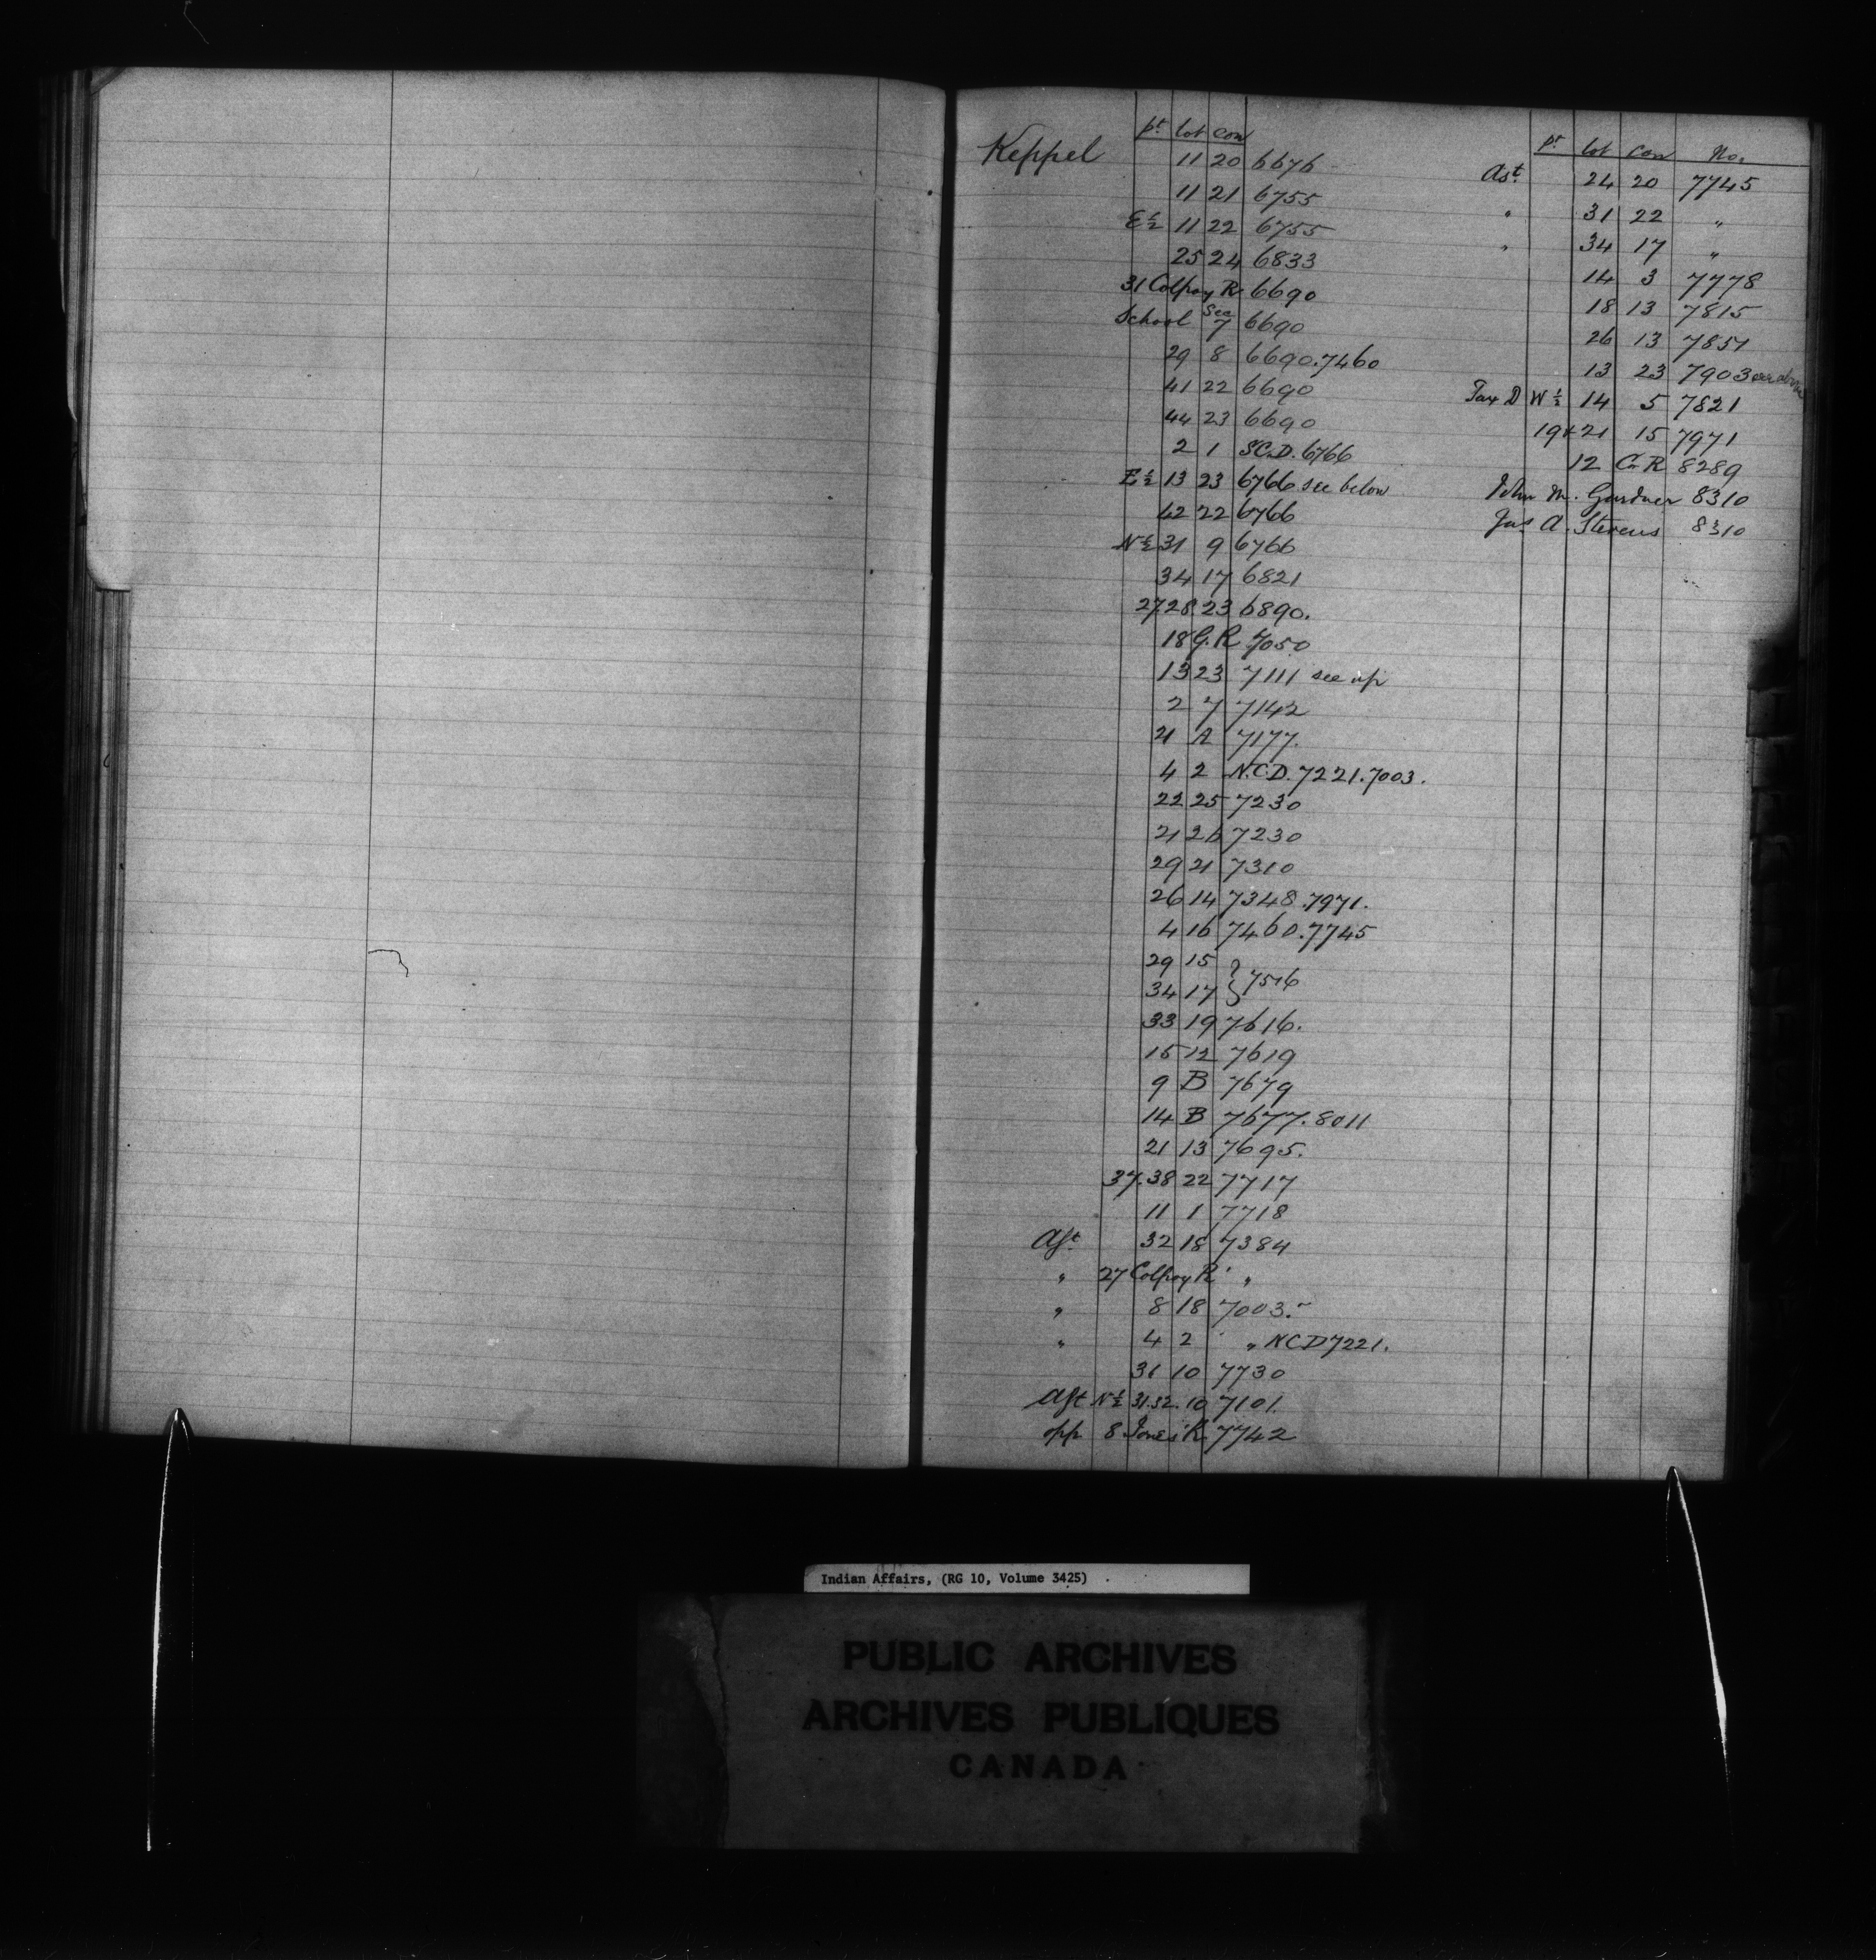 Keppel
pt lot con
11 20 6676
11 21 6755
E½ 11 22 6755
25 24 6833
31 Colpoy R 6690
School Sec 7 6690
29 8 6690.7460
41 22 6690
44 23 6690
2 1 SCD. 6766
E½ 13 23 6766 see below
42 22 6766
N½ 31 9 6766
34 17 6821
27.28 23 6890.
18 G.R. 7050
13 23 7111 see up
2 7 7142
21 A 7177.
4 2 N.C.D. 7221.7003.
22 25 7230
21 26 7230
29 21 7310
26 14 7348.7971.
4 16 7460.7745
29 15
34 17 } 7516
33 19 7616.
15 12 7619
9 B 7679
14 B 7677.8011
21 13 7695.
37.38 22 7717
11 1 7718
Ast 32 18 7384
" 27 Colpoy R "
" 8 18 7003.
" 4 2 " NCD 7221.
31 10 7730
Ast N½ 31.32. 10 7101.
opp 8 Jones R. 7742
pt lot con No.
Ast 24 20 7745
" 31 22 "
" 34 17 "
14 3 7778
18 13 7815
26 13 7857
13 23 7903 see above
Tax D W½ 14 5 7821
19+21 15 7971
12 C.R 8289
John M. Gardner 8310
Jas A. Stevens 8310
Indian Affairs, (RG 10, Volume 3425)
PUBLIC ARCHIVES
ARCHIVES PUBLIQUES
CANADA